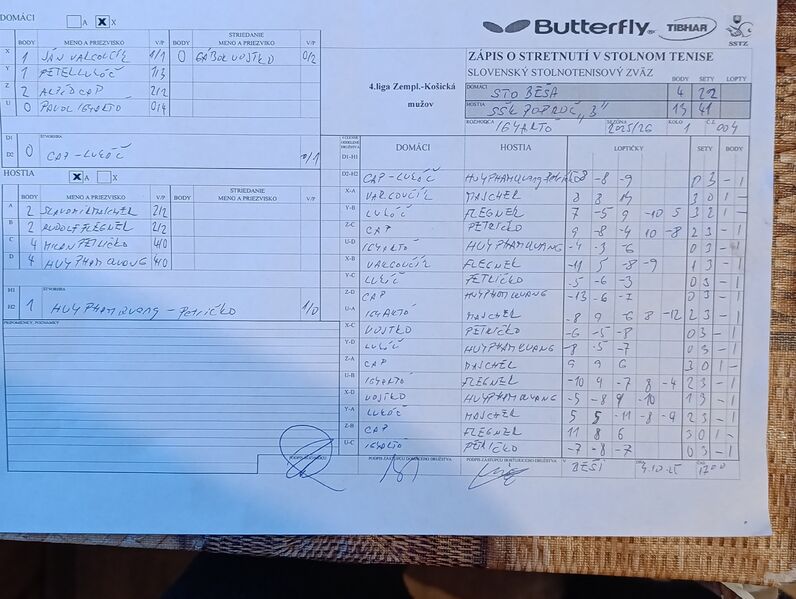 DOMÁCI A X X
Butterfly TIBHAR SSTZ
BODY MENO A PRIEZVISKO V/P BODY STRIEDANIE MENO A PRIEZVISKO V/P
X 1 JÁN VARCOVČÍK 1/1 0 GÁBOR VOSTKO 0/2
Y 1 PETER LUKÁČ 1/3
Z 2 2/2
U 0 PAVOL IGYARTÓ 0/4
D1 ŠTVORHRA
D2 0 CAP - LUKÁČ 0/1
HOSTIA X A X
BODY MENO A PRIEZVISKO V/P BODY STRIEDANIE MENO A PRIEZVISKO V/P
A 2 SLAVOMÍR MASCHER 2/2
B 2 RUDOLF FLEGNER 2/2
C 4 MILAN PETRIČKO 4/0
D 4 HUY PHAM QUANG 4/0
H1 ŠTVORHRA
H2 1 HUY PHAM QUANG - PETRIČKO 1/0
PRIPOMIENKY, POZNÁMKY
ZÁPIS O STRETNUTÍ V STOLNOM TENISE
SLOVENSKÝ STOLNOTENISOVÝ ZVÄZ BODY SETY LOPTY
4.liga Zempl.-Košická mužov
DOMÁCI STO BEŠA 4 22
HOSTIA SŠK POPROČ „B" 13 41
ROZHODCA IGYARTÓ SEZÓNA 2025/26 KOLO 1 Č.Z. 004
DOMÁCI HOSTIA LOPTIČKY SETY BODY
D1-H1
D2-H2 CAP - LUKÁČ HUY PHAM QUANG - PETRIČKO -8 -8 -9 0 3 - 1
X-A VARCOVČÍK MASCHER 8 8 3 0 1 -
Y-B LUKÁČ FLEGNER 7 -5 9 -10 5 3 2 1 -
Z-C CAP PETRIČKO 9 -8 -4 10 -8 2 3 - 1
U-D IGYARTÓ HUY PHAM QUANG -4 -3 -6 0 3 - 1
X-B VARCOVČÍK FLEGNER -11 5 -8 -9 1 3 - 1
Y-C LUKÁČ PETRIČKO -5 -6 -3 0 3 - 1
Z-D CAP HUY PHAM QUANG -13 -6 -7 0 3 - 1
U-A IGYARTÓ MASCHER -8 9 -6 8 -12 2 3 - 1
X-C VOSTKO PETRIČKO -6 -5 -8 0 3 - 1
Y-D LUKÁČ HUY PHAM QUANG -8 -5 -7 0 3 - 1
Z-A CAP MASCHER 9 9 6 3 0 1 -
U-B IGYARTÓ FLEGNER -10 9 -7 8 -4 2 3 - 1
X-D VOSTKO HUY PHAM QUANG -5 -8 9 -10 1 3 - 1
Y-A LUKÁČ MASCHER 5 5 -11 -8 -9 2 3 - 1
Z-B CAP FLEGNER 11 8 6 3 0 1 -
U-C IGYARTÓ PETRIČKO -7 -8 -7 0 3 - 1
PODPIS ZÁSTUPCU DOMÁCEHO DRUŽSTVA PODPIS ZÁSTUPCU HOSŤUJÚCEHO DRUŽSTVA V BEŠI DŇA 4.10.25 ČAS 1700